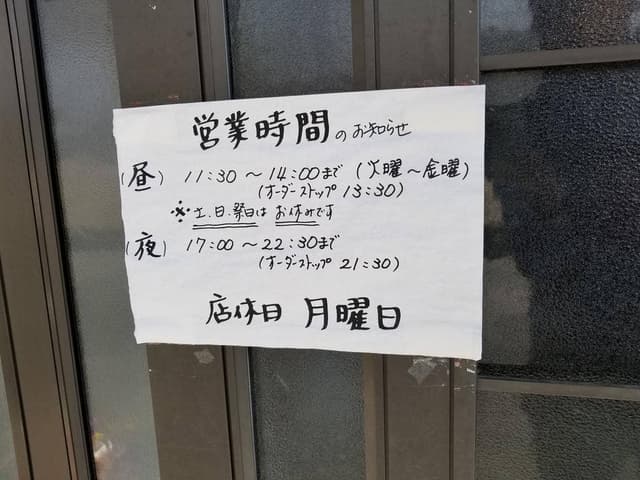 営業時間のお知らせ
(昼) 11:30～14:00まで (火曜～金曜)
(オーダーストップ 13:30)
※土、日、祭日は お休みです
(夜) 17:00～22:30まで
(オーダーストップ 21:30)
店休日 月曜日